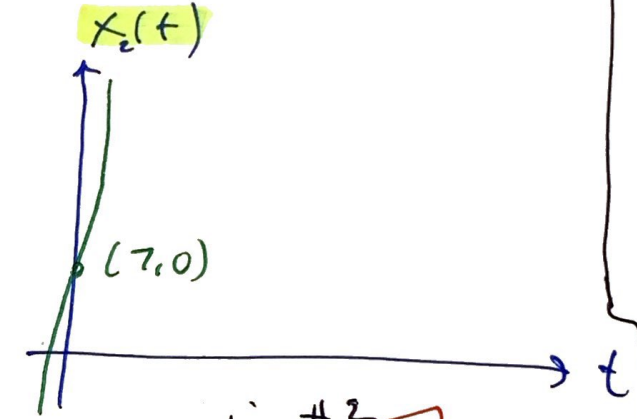 x₂(t)
(7,0)
t
#2